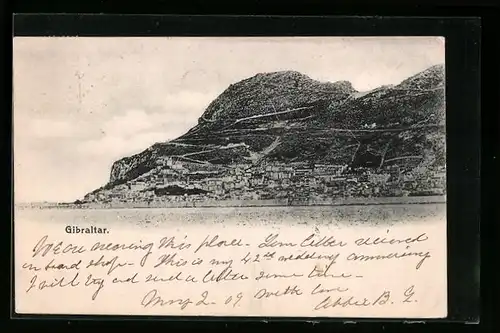 Gibraltar.
We are nearing this place - Gem letter received
on board ship - This is my 42nd wedding anniversary
I will try and send a letter some time
May 2 09 with love
Abbie B. G.